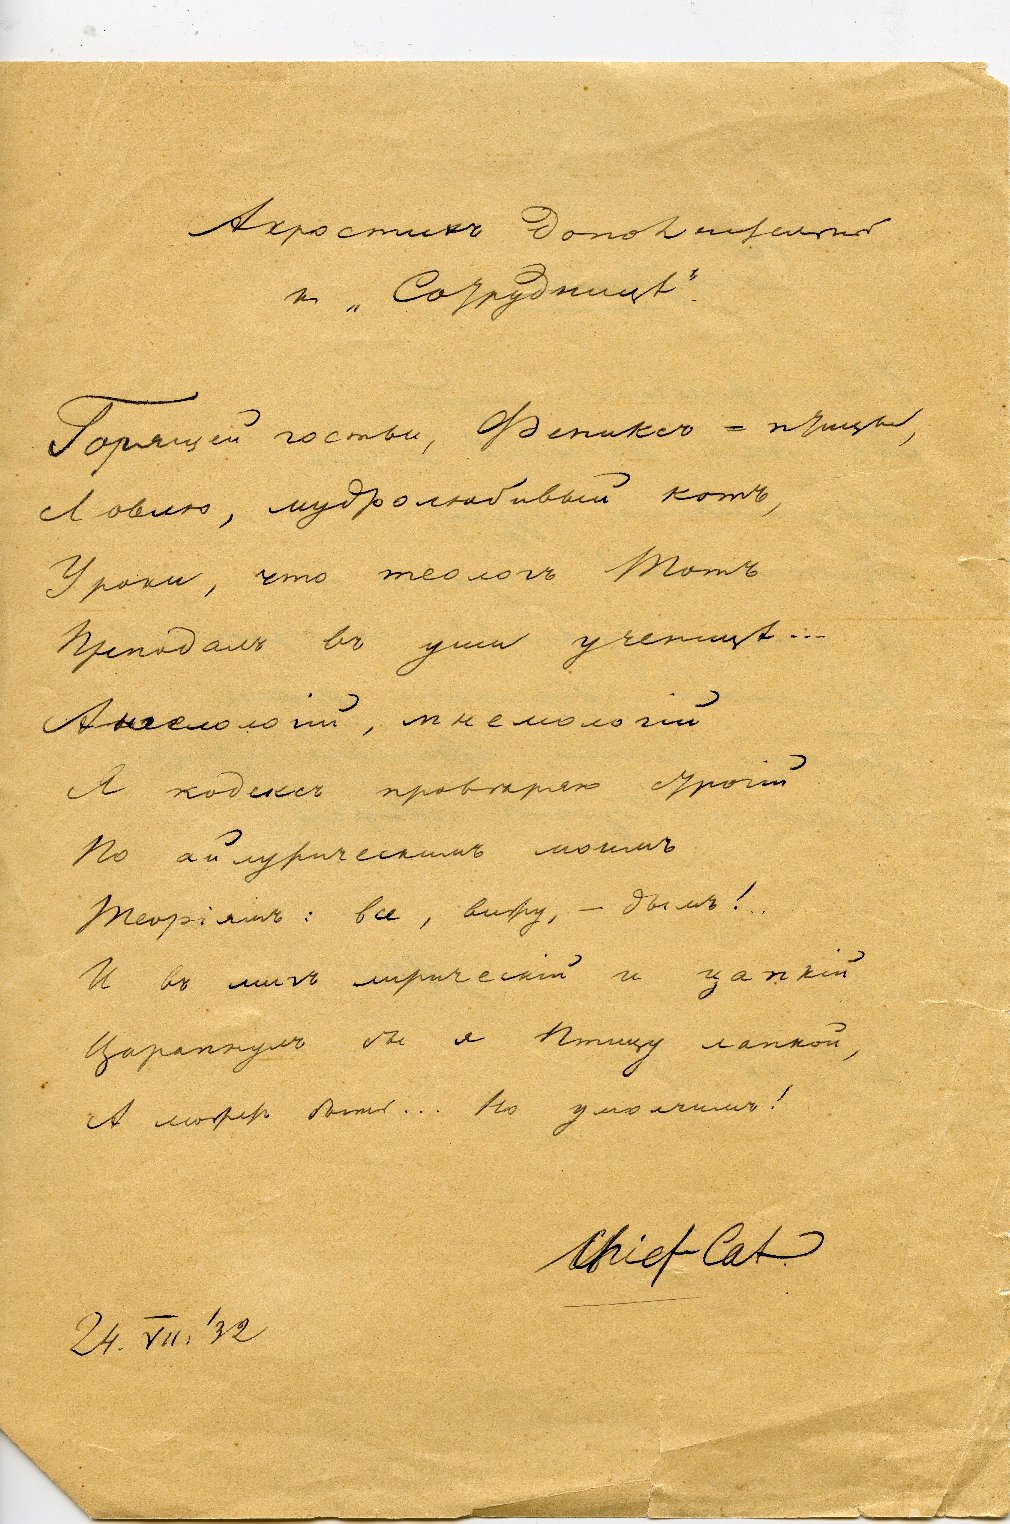 Акростихъ дополнительный
къ „Сотрудницѣ“.
Горящей гостьи, Фениксъ = птицы,
Ловлю, мудролюбивый котъ,
Уроки, что теологъ Тотъ
Преподалъ въ уши ученицѣ...
Ангелологій, пнеѵмологій
Я кодексъ провѣряю строгій
По айлурическимъ моимъ
Теоріямъ: все, вижу, — дымъ!..
И въ мигъ лирическій и цапкій
Царапнулъ бы я Птицу лапкой,
А можетъ быть... Но умолчимъ!
Chief-Cat.
24. VII. '32